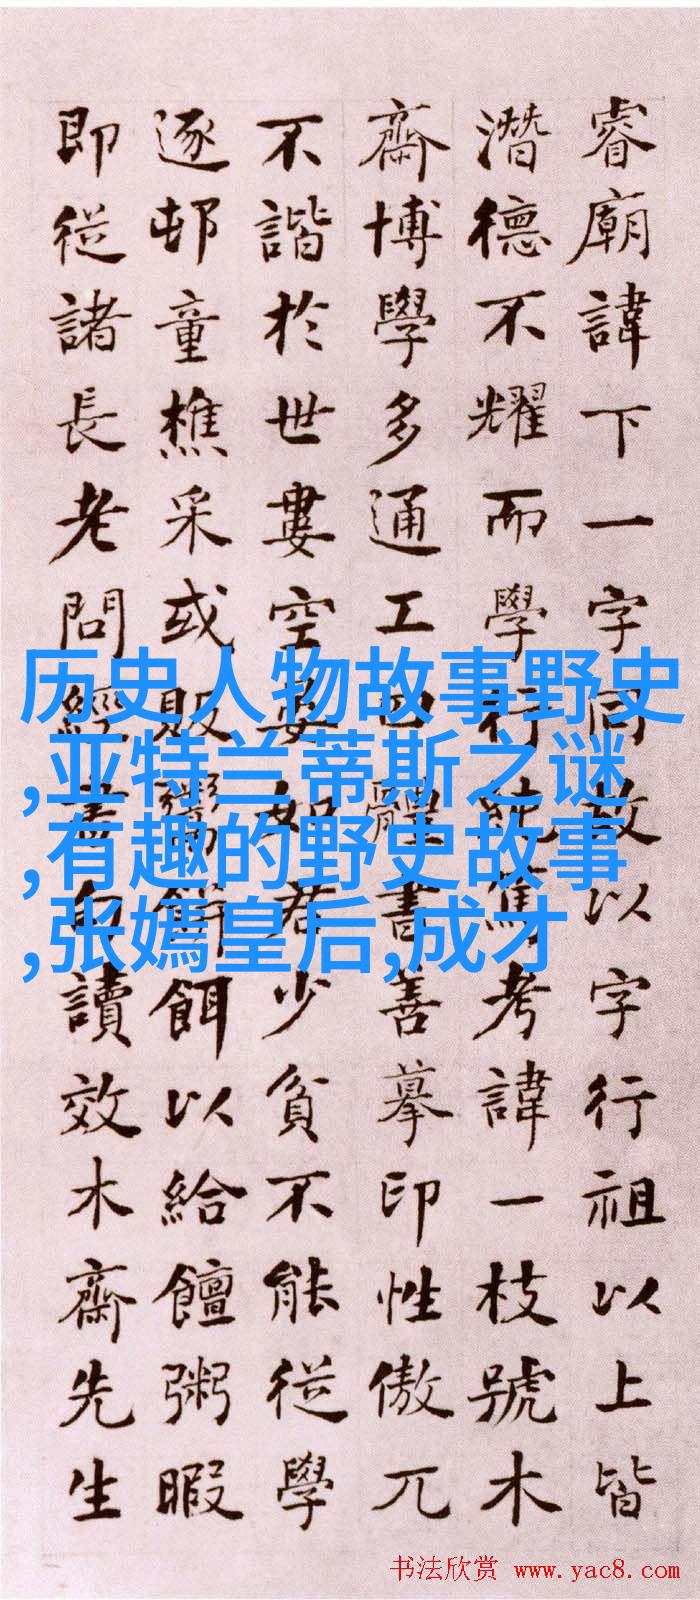 睿廟諱下一字同故以字行祖以上皆
潛德不耀而學行純篤考諱一枝號木
齋博學多通工四體書善摹印性傲兀
不諧於世婁空晏如君少貧不能從學
逐邨童樵采或販鬻餅餌以給饘粥暇
即從諸長老問經書句讀效木齋先生
历史人物故事野史
,亚特兰蒂斯之谜
,有趣的野史故事
,张嫣皇后,成才
书法欣赏 www.yac8.com